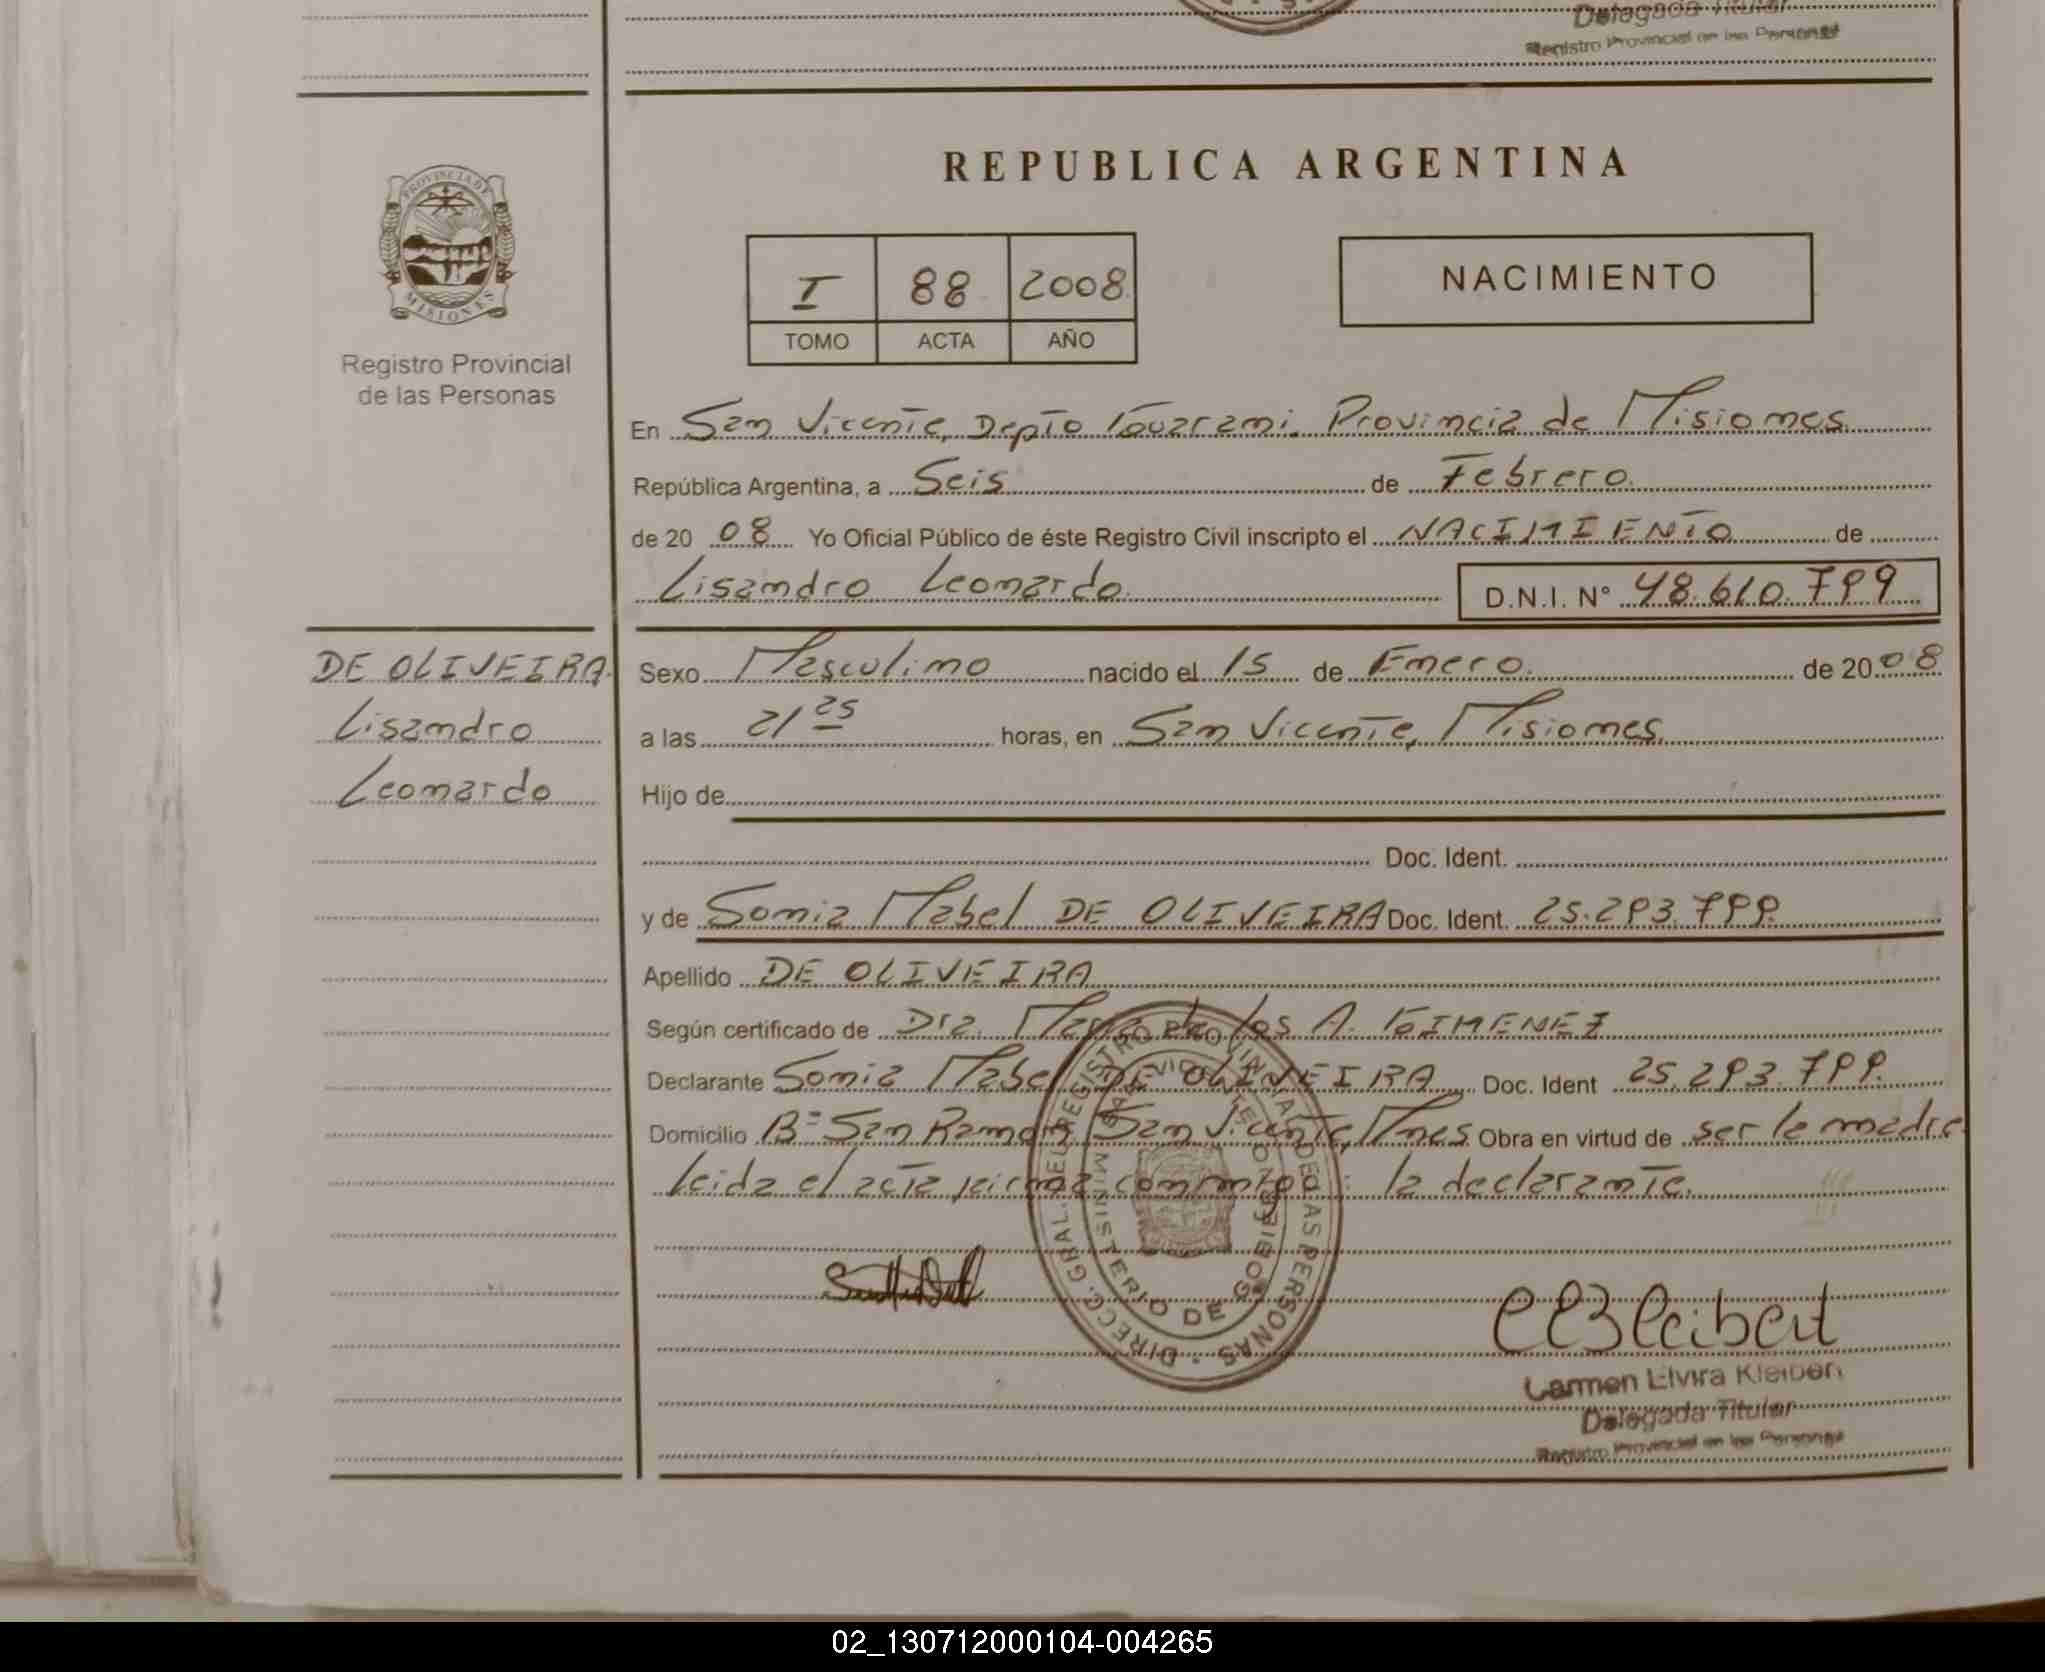 Delegada Titular
Registro Provincial de las Personas
PROVINCIA DE
MISIONES
Registro Provincial
de las Personas
REPUBLICA ARGENTINA
I 88 2008
TOMO ACTA AÑO
NACIMIENTO
En San Vicente, Depto Guarani. Provincia de Misiones
República Argentina, a Seis de Febrero.
de 20 08 Yo Oficial Público de éste Registro Civil inscripto el NACIMIENTO de
Lisandro Leonardo. D.N.I. N° 48.610.799
DE OLIVEIRA
Lisandro
Leonardo
Sexo Masculino nacido el 15 de Enero. de 2008
a las 21 25 horas, en San Vicente, Misiones.
Hijo de
Doc. Ident.
y de Sonia Mabel DE OLIVEIRA Doc. Ident. 25.293.799.
Apellido DE OLIVEIRA
Según certificado de Dra. Maria de los A. GIMENEZ
Declarante Sonia Mabel DE OLIVEIRA Doc. Ident 25.293.799.
Domicilio B= San Ramon San Vicente, Mnes Obra en virtud de ser la madre.
leida el acta firma conmigo: la declarante.
DIRECC. GRAL. DEL REGISTRO PROVINCIAL DE LAS PERSONAS
MINISTERIO DE GOBIERNO
SAN VICENTE
Carmen Elvira Kleibert
Delegada Titular
Registro Provincial de las Personas
02_130712000104-004265